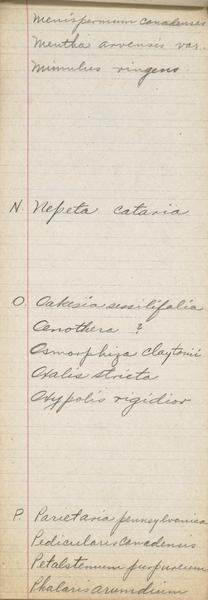 Menispermum canadense
Mentha arvensis var.
Mimulus ringens
N. Nepeta cataria
O. Oakesia sessilifolia
Oenothera ?
Osmorphiza claytonii
Oxalis stricta
Oxypolis rigidior
P. Parietaria pennsylvanica
Pedicularis canadensis
Petalstemum purpureum
Phalaris arumdium